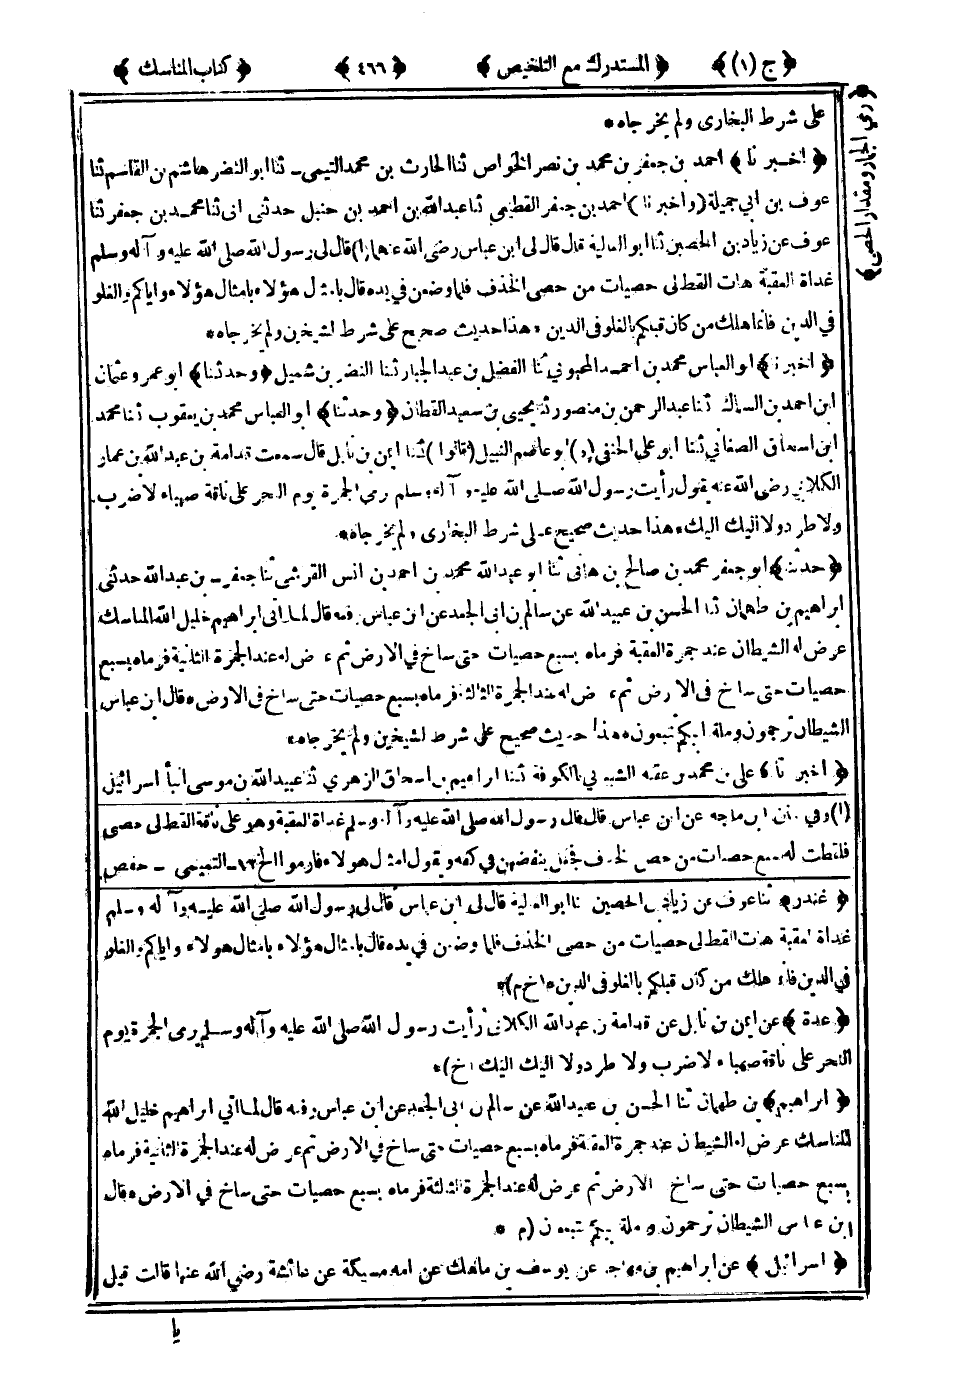 ﴿ ج (١) ﴾ ﴿ المستدرك مع التلخيص ﴾ ﴿ ٤٦٦ ﴾ ﴿ كتاب المناسك ﴾
﴿ رمي الجمار ومقدار الحصى ﴾
على شرط البخارى ولم يخرجاه *
﴿ اخبرنا ﴾ احمد بن جعفر بن محمد بن نصر الخواص ثنا الحارث بن محمد التيمى ـ ثنا ابو النضر هاشم بن القاسم ثنا
عوف بن ابي جميلة (واخبرنا) احمد بن جعفر القطيعي ثنا عبدالله بن احمد بن حنبل حدثنى ابى ثنا محمد بن جعفر ثنا
عوف عن زياد بن الحصين ثنا ابو العالية قال قال لى ابن عباس رضى الله عنهما (١) قال لى رسول الله صلى الله عليه وآله وسلم
غداة العقبة هات القط لى حصيات من حصى الخذف فلما وضعن في يده قال بامثال هؤلاء بامثال هؤلاء واياكم والغلو
في الدين فانما هلك من كان قبلكم بالغلو فى الدين * هذا حديث صحيح على شرط الشيخين ولم يخرجاه *
﴿ اخبرنا ﴾ ابو العباس محمد بن احمد المحبوبي ثنا الفضل بن عبد الجبار ثنا النضر بن شميل ﴿ وحدثنا ﴾ ابو عمرو عثمان
ابن احمد بن السماك ثنا عبد الرحمن بن منصور ثنا يحيى بن سعيد القطان ﴿ وحدثنا ﴾ ابو العباس محمد بن يعقوب ثنا محمد
ابن اسحاق الصغاني ثنا ابو علي الحنفي (و) ابو عاصم النبيل (قالوا) ثنا ايمن بن نابل قال سمعت قدامة بن عبد الله بن عمار
الكلابي رضى الله عنه يقول رأيت رسول الله صلى الله عليه وآله وسلم رمى الجمرة يوم النحر على ناقة صهباء لا ضرب
ولا طرد ولا اليك اليك * هذا حديث صحيح على شرط البخارى ولم يخرجاه *
﴿ حدثنا ﴾ ابو جعفر محمد بن صالح بن هانى ثنا ابو عبد الله محمد بن احمد بن انس القرشى ثنا جعفر ـ بن عبد الله حدثنى
ابراهيم بن طهمان ثنا الحسن بن عبيد الله عن سالم بن ابى الجعد عن ابن عباس رفعه قال لما اتى ابراهيم خليل الله المناسك
عرض له الشيطان عند جمرة العقبة فرماه بسبع حصيات حتى ساخ في الارض ثم عرض له عند الجمرة الثانية فرماه بسبع
حصيات حتى ساخ فى الارض ثم عرض له عند الجمرة الثالثة فرماه بسبع حصيات حتى ساخ فى الارض * قال ابن عباس
الشيطان ترجمون وملة ابيكم تتبعون * هذا حديث صحيح على شرط الشيخين ولم يخرجاه *
﴿ اخبرنا ﴾ على بن محمد بن عقبة الشيباني بالكوفة ثنا ابراهيم بن اسحاق الزهري ثنا عبيد الله بن موسى انبأ اسرائيل
(١) وفي سنن ابن ماجه عن ابن عباس قال قال رسول الله صلى الله عليه وآله وسلم غداة العقبة وهو على ناقة القط لى حصى
فلقطت له سبع حصيات من حصى الخذف فجعل ينفضهن في كفه ويقول امثال هولاء فارموا الخ ١٢ـ التميمى ـ حفص
﴿ غندر ﴾ ثنا عوف عن زياد بن الحصين ثنا ابو العالية قال لى ابن عباس قال لى رسول الله صلى الله عليه وآله وسلم
غداة العقبة هات القط لى حصيات من حصى الخذف فلما وضعن في يده قال بامثال هؤلاء بامثال هولاء واياكم والغلو
في الدين فانما هلك من كان قبلكم بالغلو فى الدين * (خ م) *
﴿ عدة ﴾ عن ايمن بن نابل عن قدامة بن عبد الله الكلابي رأيت رسول الله صلى الله عليه وآله وسلم يرمى الجمرة يوم
النحر على ناقة صهباء لا ضرب ولا طرد ولا اليك اليك (خ) *
﴿ ابراهيم ﴾ بن طهمان ثنا الحسن بن عبيد الله عن سالم بن ابى الجعد عن ابن عباس رفعه قال لما اتي ابراهيم خليل الله
المناسك عرض له الشيطان عند جمرة العقبة فرماه بسبع حصيات حتى ساخ في الارض ثم عرض له عند الجمرة الثانية فرماه
بسبع حصيات حتى ساخ الارض ثم عرض له عند الجمرة الثالثة فرماه بسبع حصيات حتى ساخ في الارض * قال
ابن عباس الشيطان ترجمون وملة ابيكم تتبعون (م) *
﴿ اسرائيل ﴾ عن ابراهيم بن مهاجر عن يوسف بن ماهك عن امه مسيكة عن عائشة رضي الله عنها قالت قيل
يا